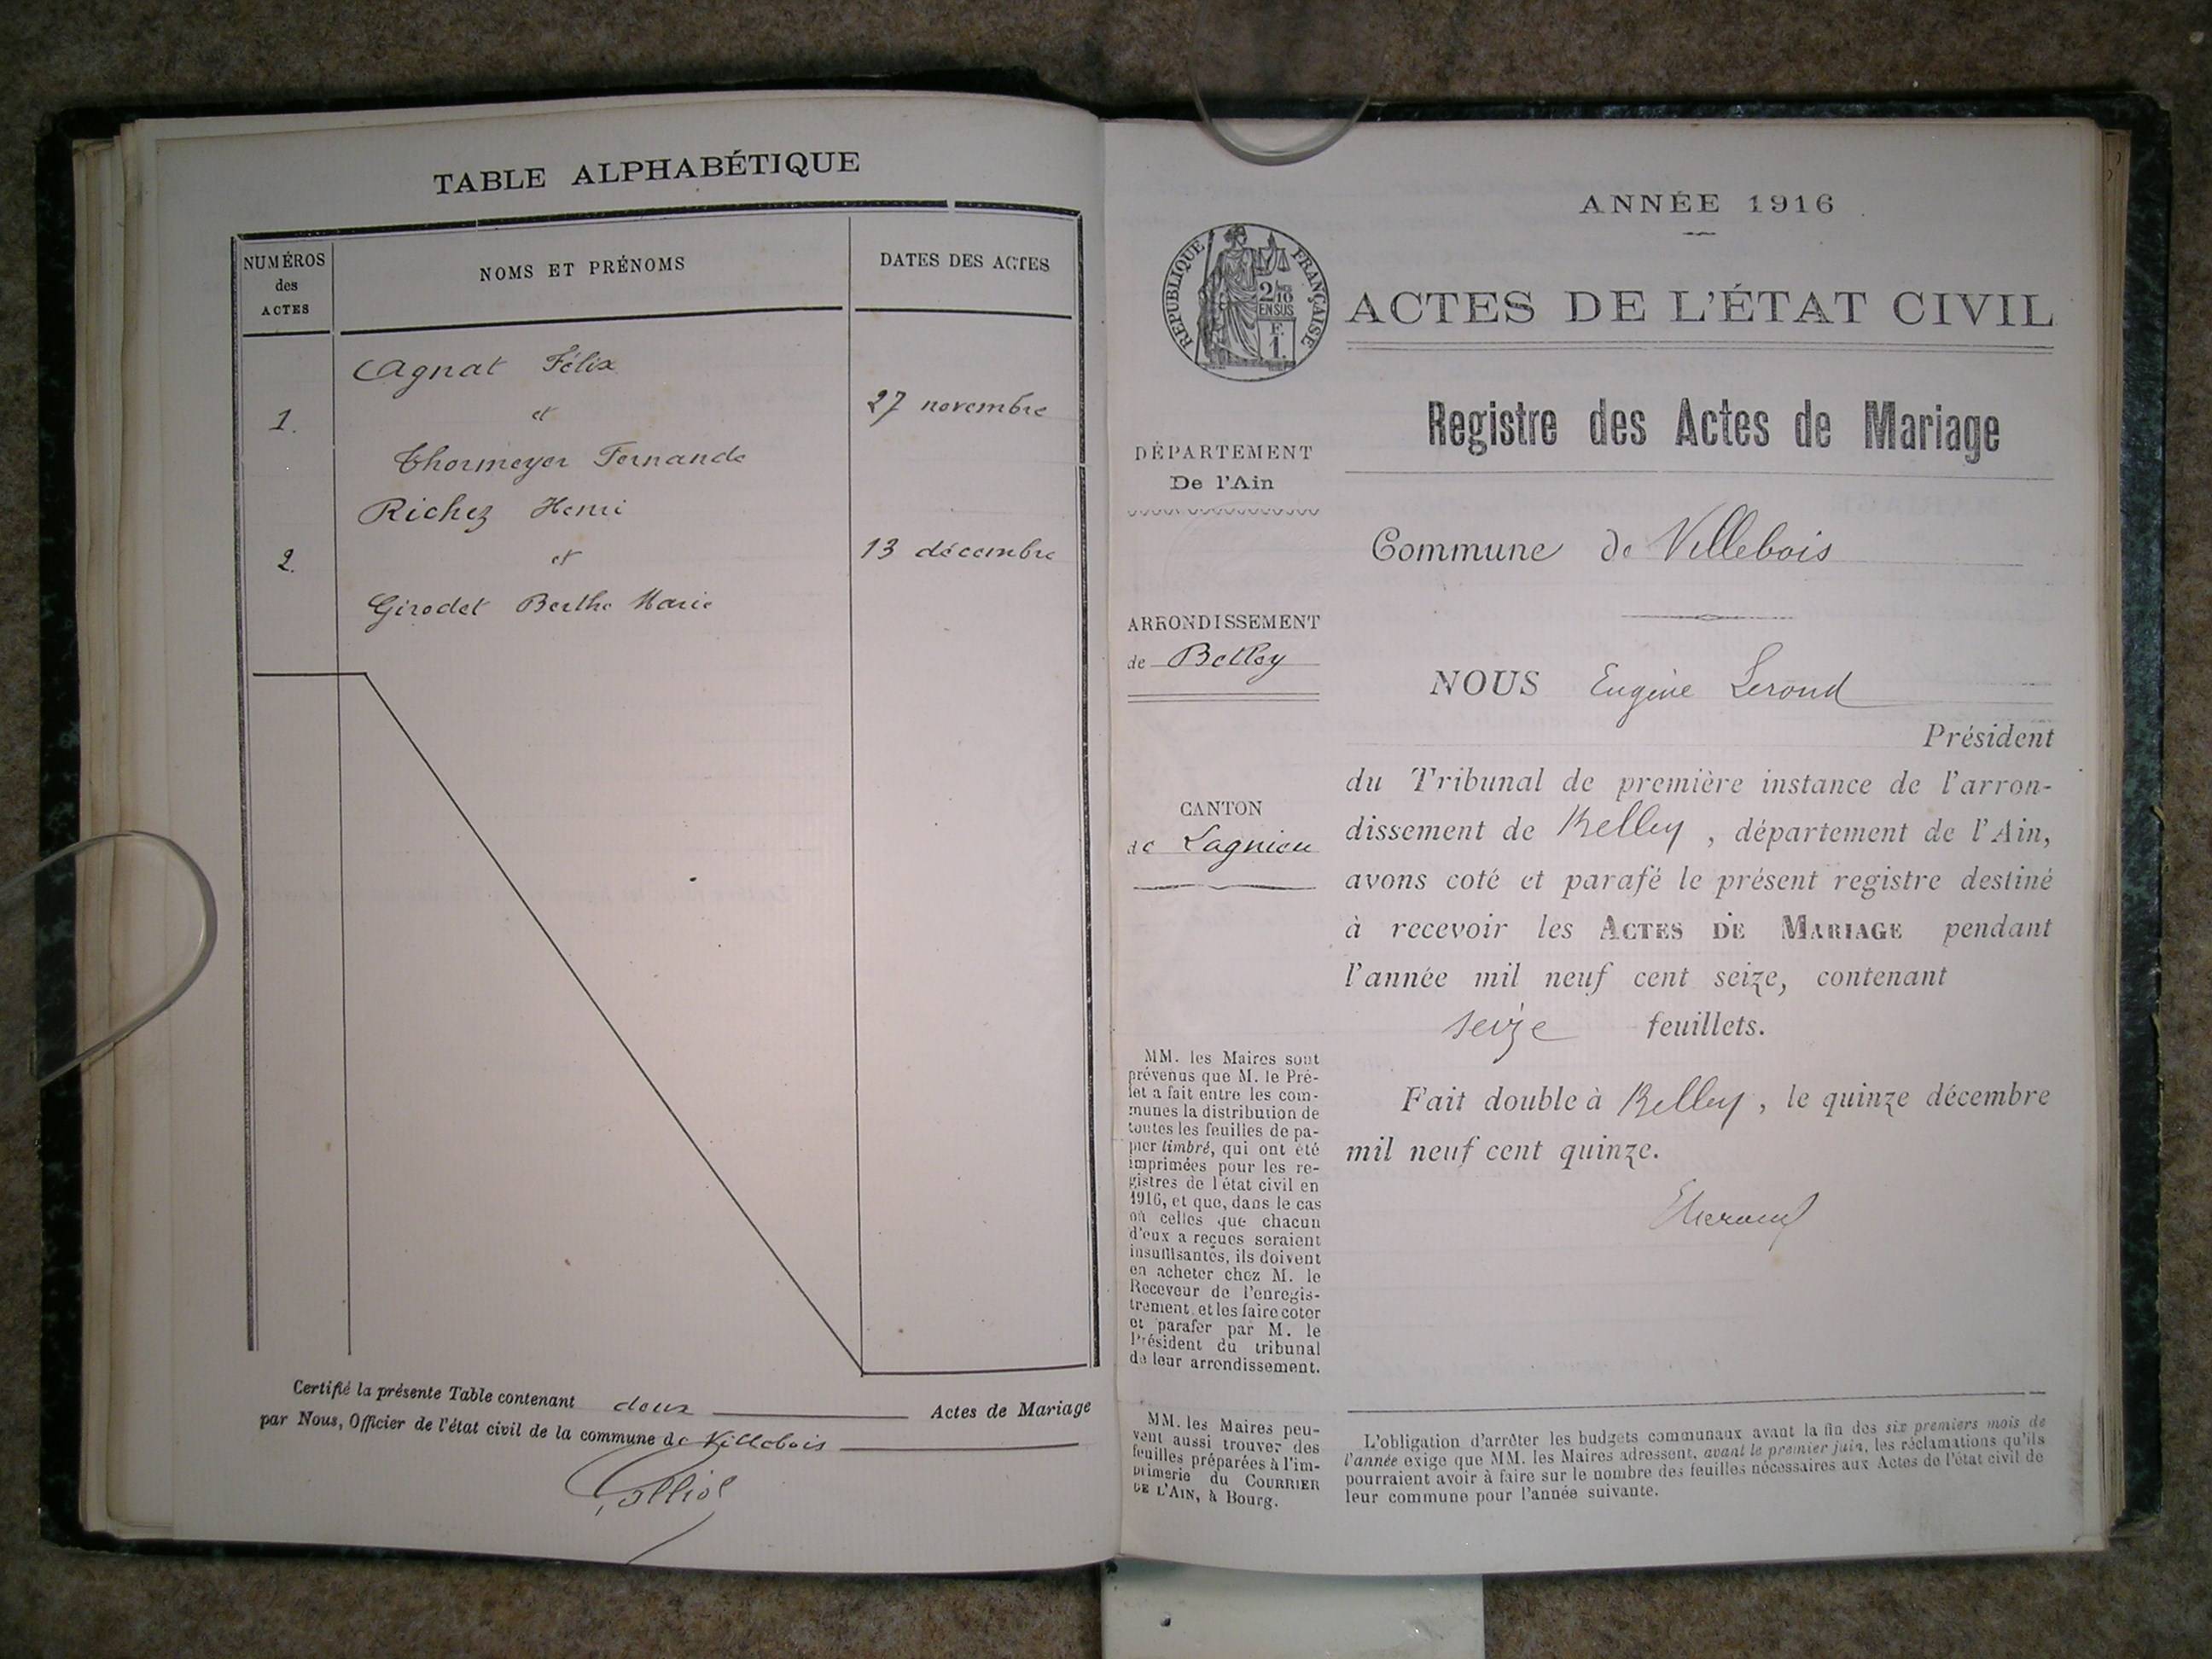 TABLE ALPHABÉTIQUE
NUMÉROS
des
ACTES
NOMS ET PRÉNOMS
DATES DES ACTES
Cagnat Félix
1. et 27 novembre
Thormeyer Fernande
Richez Henri
2. et 13 décembre
Girodet Berthe Marie
Certifié la présente Table contenant deux Actes de Mariage
par Nous, Officier de l'état civil de la commune de Villebois
RÉPUBLIQUE FRANÇAISE
2/10
EN SUS
F.
1.
DÉPARTEMENT
De l'Ain
ARRONDISSEMENT
de Belley
CANTON
de Lagnieu
MM. les Maires sont
prévenus que M. le Pré-
fet a fait entre les com-
munes la distribution de
toutes les feuilles de pa-
pier timbré, qui ont été
imprimées pour les re-
gistres de l'état civil en
1916, et que, dans le cas
où celles que chacun
d'eux a reçues seraient
insuffisantes, ils doivent
en acheter chez M. le
Receveur de l'enregis-
trement et les faire coter
et parafer par M. le
Président du tribunal
de leur arrondissement.
MM. les Maires peu-
vent aussi trouver des
feuilles préparées à l'im-
primerie du COURRIER
DE L'AIN, à Bourg.
ANNÉE 1916
ACTES DE L'ÉTAT CIVIL
Registre des Actes de Mariage
Commune de Villebois
NOUS Eugène Lerond
Président
du Tribunal de première instance de l'arron-
dissement de Belley, département de l'Ain,
avons coté et parafé le présent registre destiné
à recevoir les ACTES DE MARIAGE pendant
l'année mil neuf cent seize, contenant
seize feuillets.
Fait double à Belley, le quinze décembre
mil neuf cent quinze.
L'obligation d'arrêter les budgets communaux avant la fin des six premiers mois de
l'année exige que MM. les Maires adressent, avant le premier juin, les réclamations qu'ils
pourraient avoir à faire sur le nombre des feuilles nécessaires aux Actes de l'état civil de
leur commune pour l'année suivante.